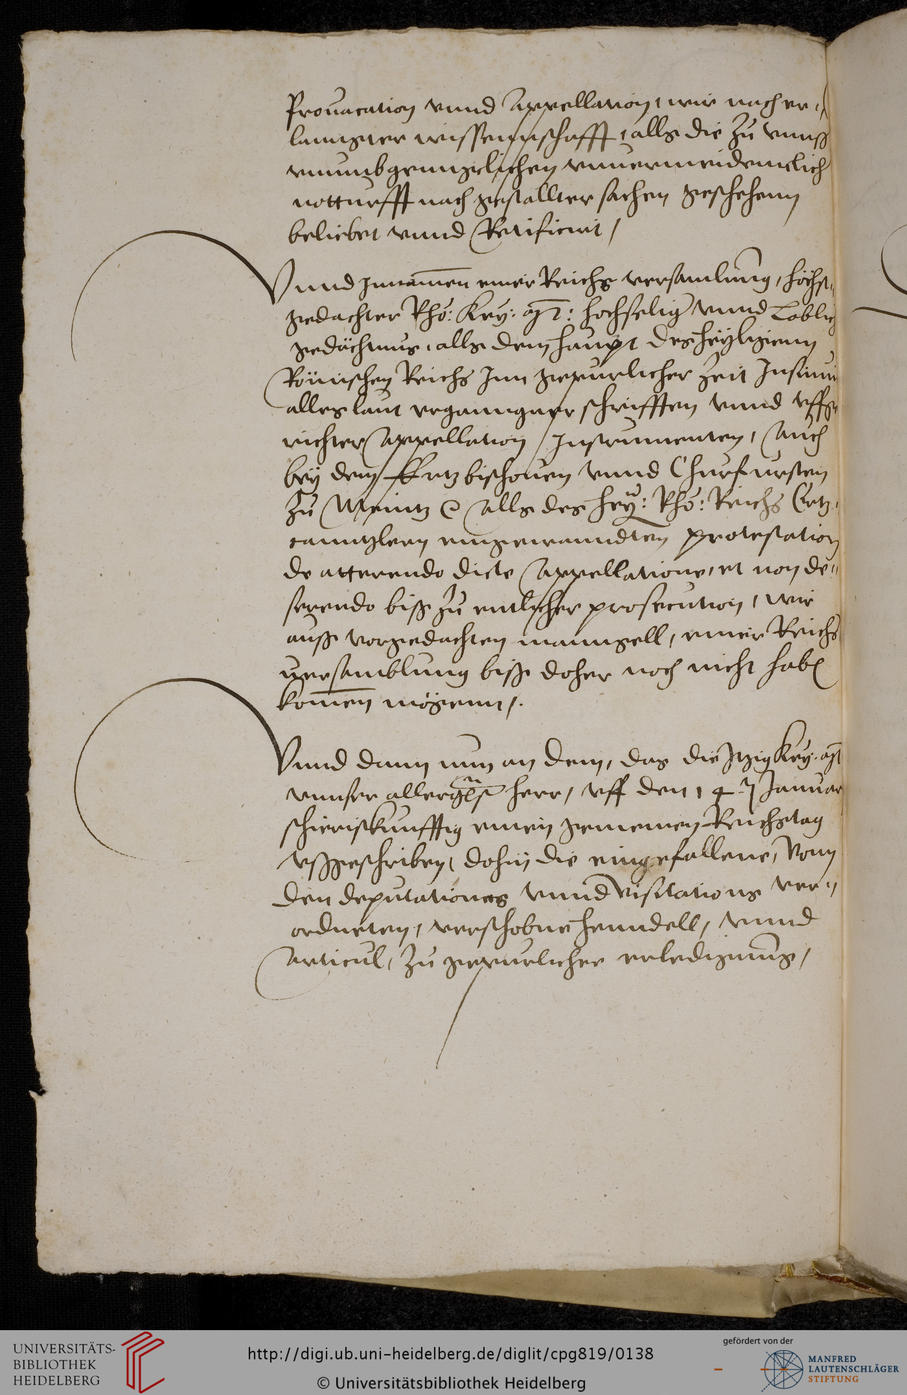 Provacation vnnd Appellation, wir nach er-
langter wissennschafft, alls die zu vnns
vnumbgenngclichen vnuermeidennlich
notturfft nach gestallter sachen geschehenn
beliebet vnnd Ratificiert,
Vnnd Innamen einer Reichs versamlung, höchst-
gedachter Rhö: Key: Mt: hochselig vnnd Loblich
gedächtnus, alls dem haupt des heyligenn
Römischen Reichs Inn gepurlicher Zeit Insinui
alles laut erganngner schrifften vnnd vffge
richter Appellation Instrumenten, Auch
bey dem Ertzbischouen vnnd Churfursten
zu Meintz alls des hey: Rhö: Reichs Ertz-
canntzlern eingewanndten protestation
de atterendo dicte Appellatione, et non de-
serendo biss zu entlicher prosecution, wir
auss vorgedachten manngell, einer Reichs
versamblung biss doher noch nicht habe
komen mögenn,
Vnnd dann nun an dem, das die Itzig Key. Mt
vnnser allergst herr, vff den 14 Januar
schieriskunfftig einen gemeinen Reichstag
vssgeschriben, dohin die eingefallene, Vonn
den deputationes vnnd visitations ver-
ordneten, verschobne henndell, vnnd
Articul, zu gepurlicher erledigunng,
UNIVERSITÄTS-
BIBLIOTHEK
HEIDELBERG
http://digi.ub.uni-heidelberg.de/diglit/cpg819/0138
© Universitätsbibliothek Heidelberg
gefördert von der
MANFRED
LAUTENSCHLÄGER
STIFTUNG